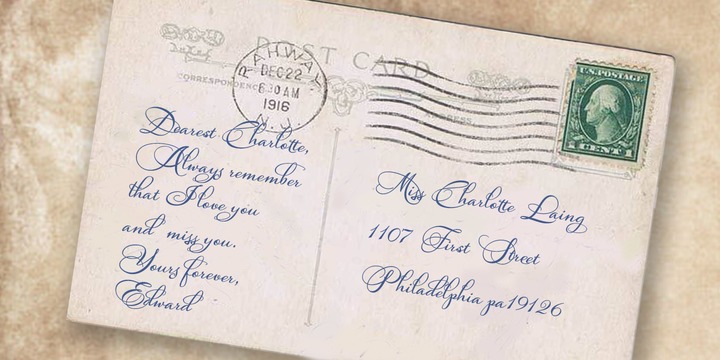 POST CARD
RAHWAY
DEC 22
6 30 AM
1916
N.J.
CORRESPONDENCE
ADDRESS
U.S. POSTAGE
1 CENT 1
Dearest Charlotte,
Always remember
that I love you
and miss you.
Yours forever,
Edward
Miss Charlotte Laing
1107 First Street
Philadelphia pa 19126